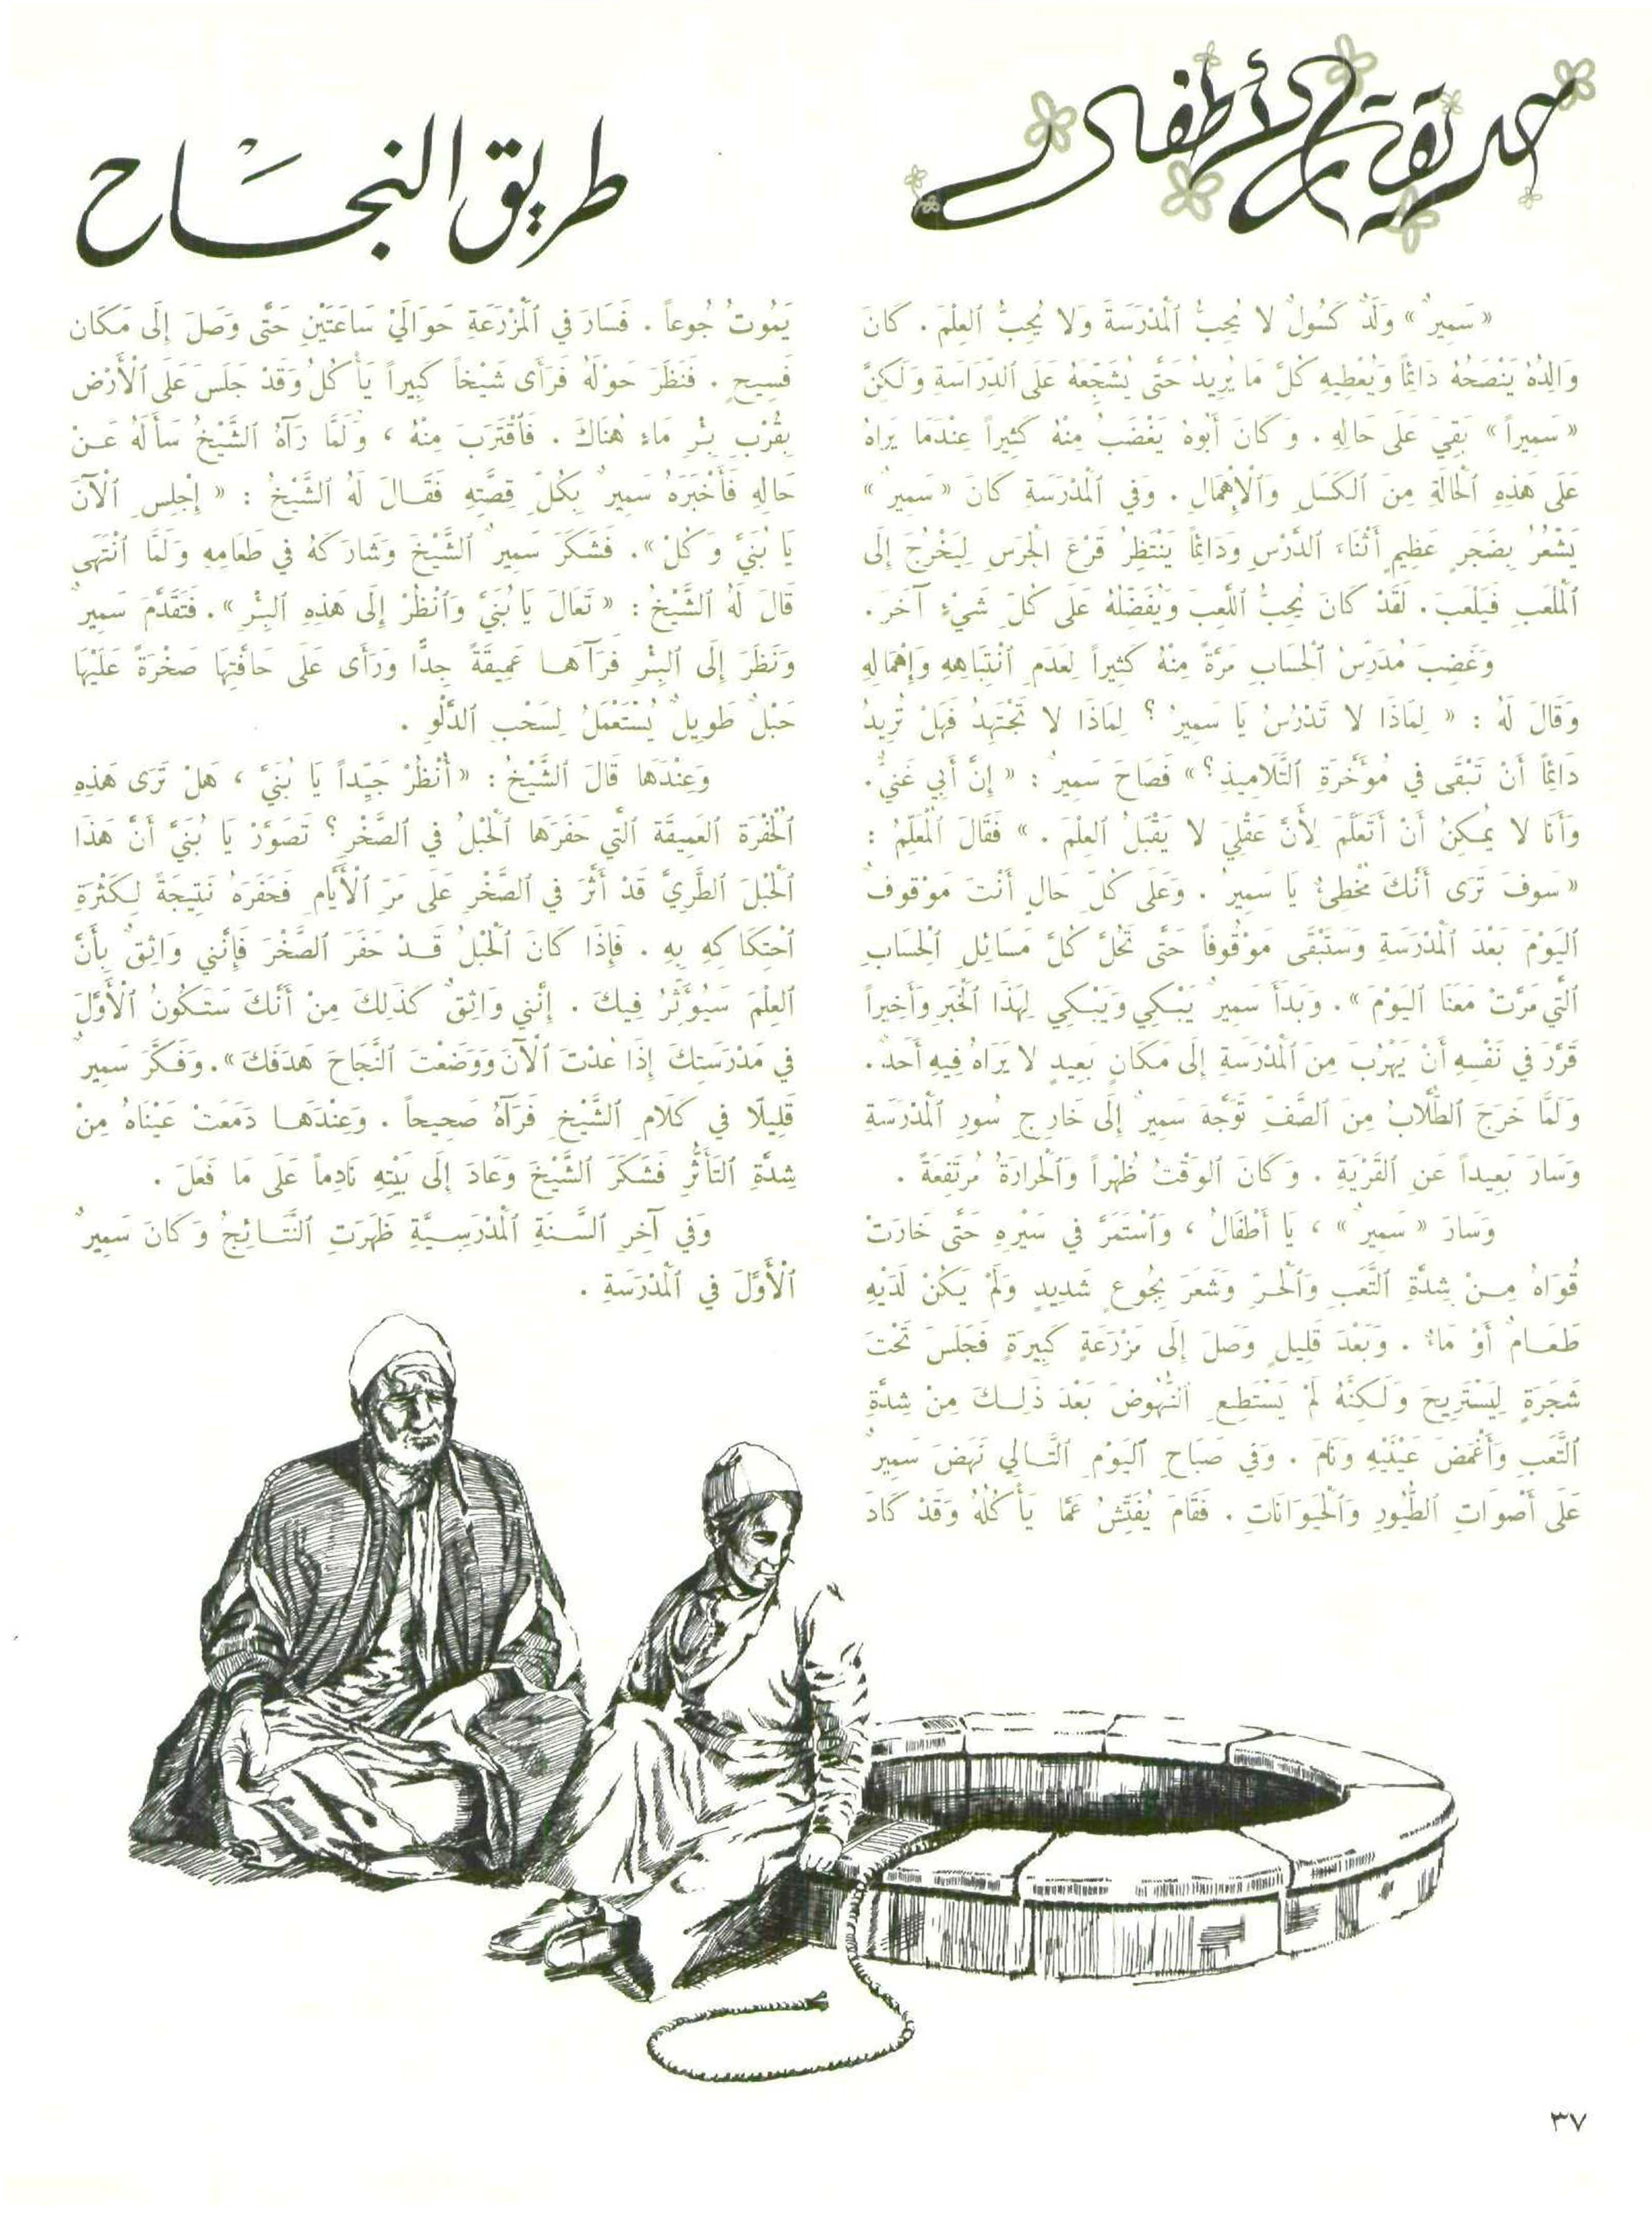 حديقة الأطفال
طريق النجاح
«سَمِيرٌ» وَلَدٌ كَسُولٌ لا يُحِبُّ ٱلْمَدْرَسَةَ وَلا يُحِبُّ ٱلعِلْمَ . كَانَ
وَالِدُهُ يَنْصَحُهُ دَائِمًا وَيُعْطِيهِ كُلَّ مَا يُرِيدُ حَتَّى يُشَجِّعَهُ عَلَى ٱلدِّرَاسَةِ وَلَكِنَّ
«سَمِيراً» بَقِيَ عَلَى حَالِهِ . وَكَانَ أَبُوهُ يَغْضَبُ مِنْهُ كَثِيراً عِنْدَمَا يَرَاهُ
عَلَى هَذِهِ ٱلْحَالَةِ مِنَ ٱلكَسَلِ وَٱلْإِهْمَالِ . وَفِي ٱلْمَدْرَسَةِ كَانَ «سَمِيرٌ»
يَشْعُرُ بِضَجَرٍ عَظِيمٍ أَثْنَاءَ ٱلدَّرْسِ وَدَائِمًا يَنْتَظِرُ قَرْعَ ٱلْجَرَسِ لِيَخْرُجَ إِلَى
ٱلْمَلْعَبِ فَيَلْعَبَ . لَقَدْ كَانَ يُحِبُّ ٱللَّعِبَ وَيُفَضِّلُهُ عَلَى كُلِّ شَيْءٍ آخَرَ .
وَغَضِبَ مُدَرِّسُ ٱلْحِسَابِ مَرَّةً مِنْهُ كَثِيراً لِعَدَمِ ٱنْتِبَاهِهِ وَإِهْمَالِهِ
وَقَالَ لَهُ : « لِمَاذَا لا تَدْرُسُ يَا سَمِيرُ ؟ لِمَاذَا لا تَجْتَهِدُ فَهَلْ تُرِيدُ
دَائِمًا أَنْ تَبْقَى فِي مُؤَخَّرَةِ ٱلتَّلَامِيذِ ؟ » فَصَاحَ سَمِيرٌ : « إِنَّ أَبِي غَنِيٌّ .
وَأَنَا لا يُمْكِنُ أَنْ أَتَعَلَّمَ لِأَنَّ عَقْلِي لا يَقْبَلُ ٱلعِلْمَ . » فَقَالَ ٱلْمُعَلِّمُ :
« سَوفَ تَرَى أَنَّكَ مُخْطِئٌ يَا سَمِيرُ . وَعَلَى كُلِّ حَالٍ أَنْتَ مَوْقُوفٌ
ٱليَوْمَ بَعْدَ ٱلْمَدْرَسَةِ وَسَتَبْقَى مَوْقُوفاً حَتَّى تَحُلَّ كُلَّ مَسَائِلِ ٱلْحِسَابِ
ٱلَّتِي مَرَّتْ مَعَنَا ٱليَوْمَ ». وَبَدَأَ سَمِيرٌ يَبْكِي وَيَبْكِي لِهَذَا ٱلْخَبَرِ وَأَخِيراً
قَرَّرَ فِي نَفْسِهِ أَنْ يَهْرُبَ مِنَ ٱلْمَدْرَسَةِ إِلَى مَكَانٍ بَعِيدٍ لا يَرَاهُ فِيهِ أَحَدٌ .
وَلَمَّا خَرَجَ ٱلطُّلَّابُ مِنَ ٱلصَّفِّ تَوَجَّهَ سَمِيرٌ إِلَى خَارِجِ سُورِ ٱلْمَدْرَسَةِ
وَسَارَ بَعِيداً عَنِ ٱلقَرْيَةِ . وَكَانَ ٱلوَقْتُ ظُهْراً وَٱلْحَرَارَةُ مُرْتَفِعَةً .
وَسَارَ « سَمِيرٌ » ، يَا أَطْفَالُ ، وَٱسْتَمَرَّ فِي سَيْرِهِ حَتَّى خَارَتْ
قُوَاهُ مِنْ شِدَّةِ ٱلتَّعَبِ وَٱلْحَرِّ وَشَعَرَ بِجُوعٍ شَدِيدٍ وَلَمْ يَكُنْ لَدَيْهِ
طَعَامٌ أَوْ مَاءٌ . وَبَعْدَ قَلِيلٍ وَصَلَ إِلَى مَزْرَعَةٍ كَبِيرَةٍ فَجَلَسَ تَحْتَ
شَجَرَةٍ لِيَسْتَرِيحَ وَلَكِنَّهُ لَمْ يَسْتَطِعِ ٱلنُّهُوضَ بَعْدَ ذَلِكَ مِنْ شِدَّةِ
ٱلتَّعَبِ وَأَغْمَضَ عَيْنَيْهِ وَنَامَ . وَفِي صَبَاحِ ٱليَوْمِ ٱلتَّالِي نَهَضَ سَمِيرٌ
عَلَى أَصْوَاتِ ٱلطُّيُورِ وَٱلْحَيَوَانَاتِ . فَقَامَ يُفَتِّشُ عَمَّا يَأْكُلُهُ وَقَدْ كَادَ
يَمُوتُ جُوعاً . فَسَارَ فِي ٱلْمَزْرَعَةِ حَوَالَيْ سَاعَتَيْنِ حَتَّى وَصَلَ إِلَى مَكَانٍ
فَسِيحٍ . فَنَظَرَ حَوْلَهُ فَرَأَى شَيْخاً كَبِيراً يَأْكُلُ وَقَدْ جَلَسَ عَلَى ٱلْأَرْضِ
بِقُرْبِ بِئْرِ مَاءٍ هُنَاكَ . فَٱقْتَرَبَ مِنْهُ ، وَلَمَّا رَآهُ ٱلشَّيْخُ سَأَلَهُ عَنْ
حَالِهِ فَأَخْبَرَهُ سَمِيرٌ بِكُلِّ قِصَّتِهِ فَقَالَ لَهُ ٱلشَّيْخُ : « إِجْلِسِ ٱلْآنَ
يَا بُنَيَّ وَكُلْ ». فَشَكَرَ سَمِيرٌ ٱلشَّيْخَ وَشَارَكَهُ فِي طَعَامِهِ وَلَمَّا ٱنْتَهَى
قَالَ لَهُ ٱلشَّيْخُ : « تَعَالَ يَا بُنَيَّ وَٱنْظُرْ إِلَى هَذِهِ ٱلبِئْرِ ». فَتَقَدَّمَ سَمِيرٌ
وَنَظَرَ إِلَى ٱلبِئْرِ فَرَآهَا عَمِيقَةً جِدًّا وَرَأَى عَلَى حَافَّتِهَا صَخْرَةً عَلَيْهَا
حَبْلٌ طَوِيلٌ يُسْتَعْمَلُ لِسَحْبِ ٱلدَّلْوِ .
وَعِنْدَهَا قَالَ ٱلشَّيْخُ : « أُنْظُرْ جَيِّداً يَا بُنَيَّ ، هَلْ تَرَى هَذِهِ
ٱلْحُفْرَةَ ٱلعَمِيقَةَ ٱلَّتِي حَفَرَهَا ٱلْحَبْلُ فِي ٱلصَّخْرِ ؟ تَصَوَّرْ يَا بُنَيَّ أَنَّ هَذَا
ٱلْحَبْلَ ٱلطَّرِيَّ قَدْ أَثَّرَ فِي ٱلصَّخْرِ عَلَى مَرِّ ٱلْأَيَّامِ فَحَفَرَهُ نَتِيجَةً لِكَثْرَةِ
ٱحْتِكَاكِهِ بِهِ . فَإِذَا كَانَ ٱلْحَبْلُ قَدْ حَفَرَ ٱلصَّخْرَ فَإِنَّنِي وَاثِقٌ بِأَنَّ
ٱلعِلْمَ سَيُؤَثِّرُ فِيكَ . إِنَّنِي وَاثِقٌ كَذَلِكَ مِنْ أَنَّكَ سَتَكُونُ ٱلْأَوَّلَ
فِي مَدْرَسَتِكَ إِذَا عُدْتَ ٱلْآنَ وَوَضَعْتَ ٱلنَّجَاحَ هَدَفَكَ ». وَفَكَّرَ سَمِيرٌ
قَلِيلًا فِي كَلَامِ ٱلشَّيْخِ فَرَآهُ صَحِيحاً . وَعِنْدَهَا دَمَعَتْ عَيْنَاهُ مِنْ
شِدَّةِ ٱلتَّأَثُّرِ فَشَكَرَ ٱلشَّيْخَ وَعَادَ إِلَى بَيْتِهِ نَادِماً عَلَى مَا فَعَلَ .
وَفِي آخِرِ ٱلسَّنَةِ ٱلْمَدْرَسِيَّةِ ظَهَرَتِ ٱلنَّتَائِجُ وَكَانَ سَمِيرٌ
ٱلْأَوَّلَ فِي ٱلْمَدْرَسَةِ .
٣٧